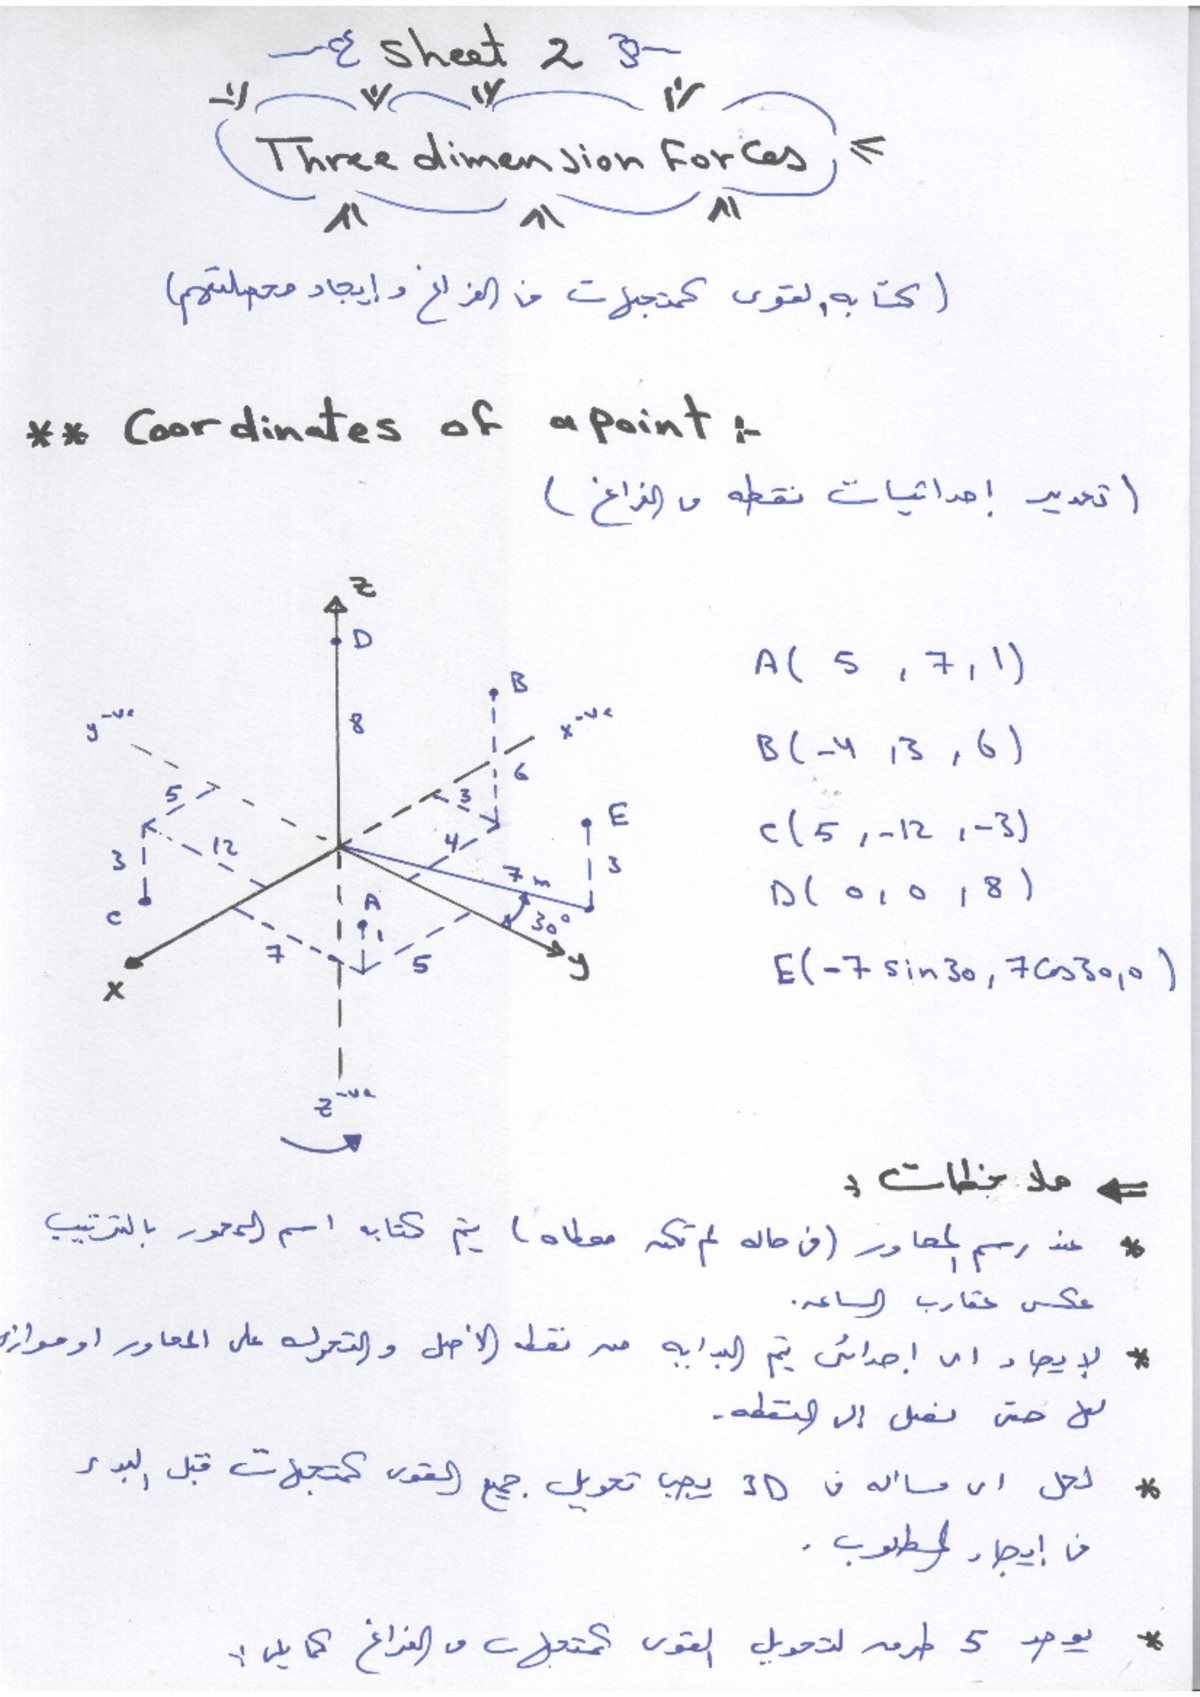 Sheet 2
Three dimension Forces
(كتابه القوى كمتجهات فى الفراغ و إيجاد محصلتهم)
** Coordinates of a point :-
(تحديد إحداثيات نقطه فى الفراغ)
z
D
8
B
y -ve
x -ve
6
5
3
E
12
4
3
3
7 m
A
C
30°
1
7
5
y
x
z -ve
A( 5 , 7 , 1)
B( -4 , 3 , 6)
C( 5 , -12 , -3)
D( 0 , 0 , 8)
E( -7 sin30 , 7 Cos30 , 0 )
ملاحظات :
* عند رسم المحاور (فى حاله لم تكن معطاه) يتم كتابه اسم المحور بالترتيب
عكس عقارب الساعه.
* لإيجاد اى إحداثى يتم البدايه من نقطه الأصل والتحرك على المحاور او موازى
لها حتى نصل إلى النقطه.
* لحل اى مسأله فى 3D يجب تحويل جميع القوى كمتجهات قبل البدء
فى إيجاد المطلوب .
* يوجد 5 طرق لتحويل القوى كمتجهات فى الفراغ كما يلى :